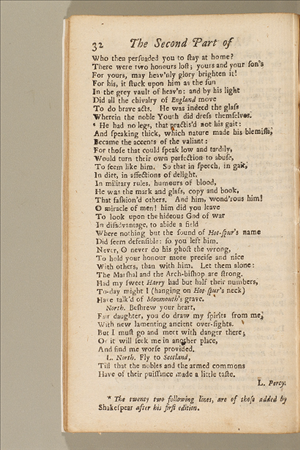 32 The Second Part of
Who then persuaded you to stay at home?
There were two honours lost; yours and your son's
For yours, may heav'nly glory brighten it!
For his, it stuck upon him as the sun
In the grey vault of heav'n: and by his light
Did all the chivalry of England move
To do brave acts. He was indeed the glass
Wherein the noble Youth did dress themselves.
* He had no legs, that practis'd not his gait:
And speaking thick, which nature made his blemish,
Became the accents of the valiant:
For those that could speak low and tardily,
Would turn their own perfection to abuse,
To seem like him. So that in speech, in gait,
In diet, in affections of delight,
In military rules, humours of blood,
He was the mark and glass, copy and book,
That fashion'd others. And him, wond'rous him!
O miracle of men! him did you leave
To look upon the hideous God of war
In disadvantage, to abide a field
Where nothing but the sound of Hot-spur's name
Did seem defensible: so you left him.
Never, O never do his ghost the wrong,
To hold your honour more precise and nice
With others, than with him. Let them alone:
The Marshal and the Arch-bishop are strong.
Had my sweet Harry had but half their numbers,
To-day might I (hanging on Hot-spur's neck)
Have talk'd of Monmouth's grave.
North. Beshrew your heart,
Fair daughter, you do draw my spirits from me,
With new lamenting ancient over-sights.
But I must go and meet with danger there;
Or it will seek me in another place,
And find me worse provided.
L. North. Fly to Scotland,
Till that the nobles and the armed commons
Have of their puissance made a little taste.
L. Percy.
* The twenty two following lines, are of those added by
Shakespear after his first edition.